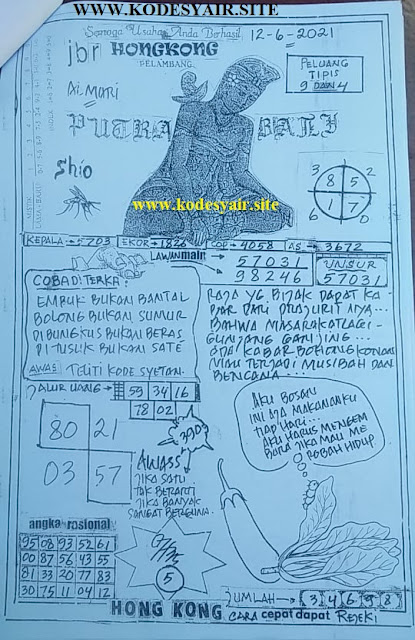 WWW.KODESYAIR.SITE
Semoga Usaha Anda Berhasil
12-6-2021
jbr HONGKONG
PELAMBANG.
PELUANG
TIPIS
9 DAN 4
PUTRA BALI
Shio
www.kodesyair.site
3 2
8 5
1 7
6 0
KEPALA → 5703 EKOR → 1826 COP → 4058 AS → 3672
LAWAN main
57031
98246
UNSUR
57031
COBA DITERKA :
EMBUK BUKAN BANTAL
BOLONG BUKAN SUMUR
DIBUNGKUS BUKAN BERAS
DITUSUK BUKAN SATE
AWAS TELITI KODE SYETAN.
RAJA YG. BIJAK DAPAT KA
BAR DARI PRAJURIT NYA...
BAHWA MASARAKAT LAGI -
GUNJANG GANJING ...
ADA KABAR BOHONG KONON
MAU TERJADI MUSIBAH DAN
BENCANA ....
JALUR UANG → 59 34 16
78 02
80 21
03 57
AWASS
JIKA SATU
TAK BERARTI
JIKA BANYAK
SANGAT BERGUNA.
AKU BOSAN
INI AJA MAKANANKU
TIAP HARI...
AKU HARUS MENGEM
BARA JIKA MAU ME
ROBAH HIDUP
angka rasional
95 08 93 52 61
00 87 56 43 55
81 33 20 77 83
30 75 11 04 12
5
JUMLAH → 3 4 6 9 8
HONG KONG CARA cepat dapat REJEKI